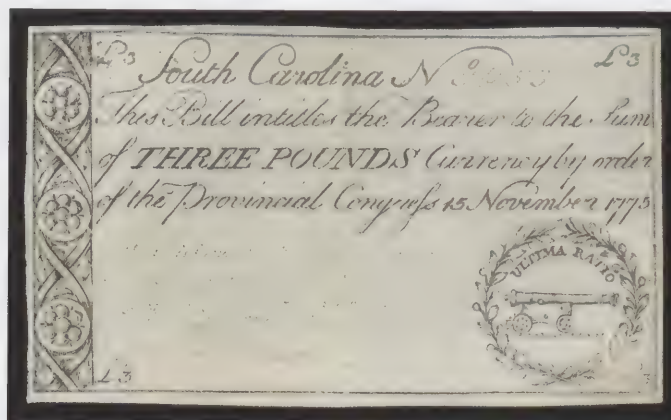 £3 South Carolina N £3
This Bill intitles the Bearer to the Sum
of THREE POUNDS Currency by order
of the Provincial Congreſs 15 November 1775
ULTIMA RATIO
£3